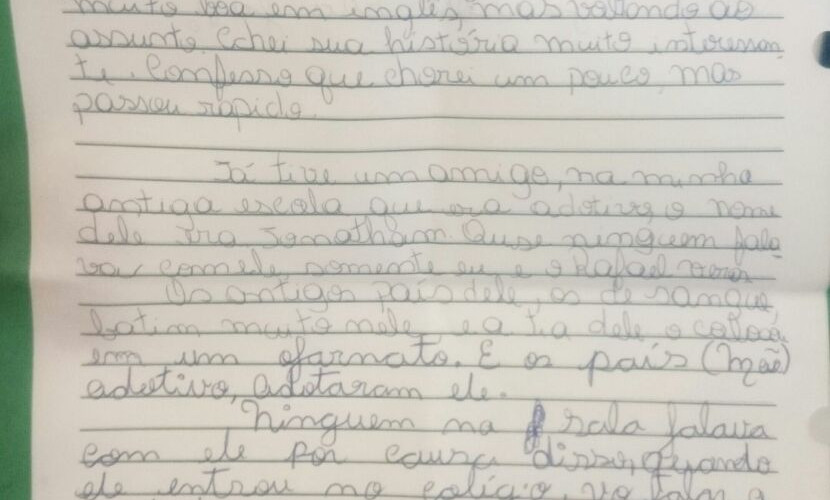 muito boa em inglês, mas voltando ao
assunto. Echei sua história muito interessan
te. Comfesso que chorei um pouco mas
passou rápido.
Já tive um amigo, na minha
antiga escola que era adotivo o nome
dele era Jonatham. Quse ninguem fala
va comele somente eu e o Rafael
Os antigos país dele, os de sangue
batim muito nele e a tia dele o coloca
em um ofarnato. E os país (mãe)
adotivo, adotaram ele.
Ninguem na sala falava
com ele por causa disso, quando
ele entrou no colégio, vo falar